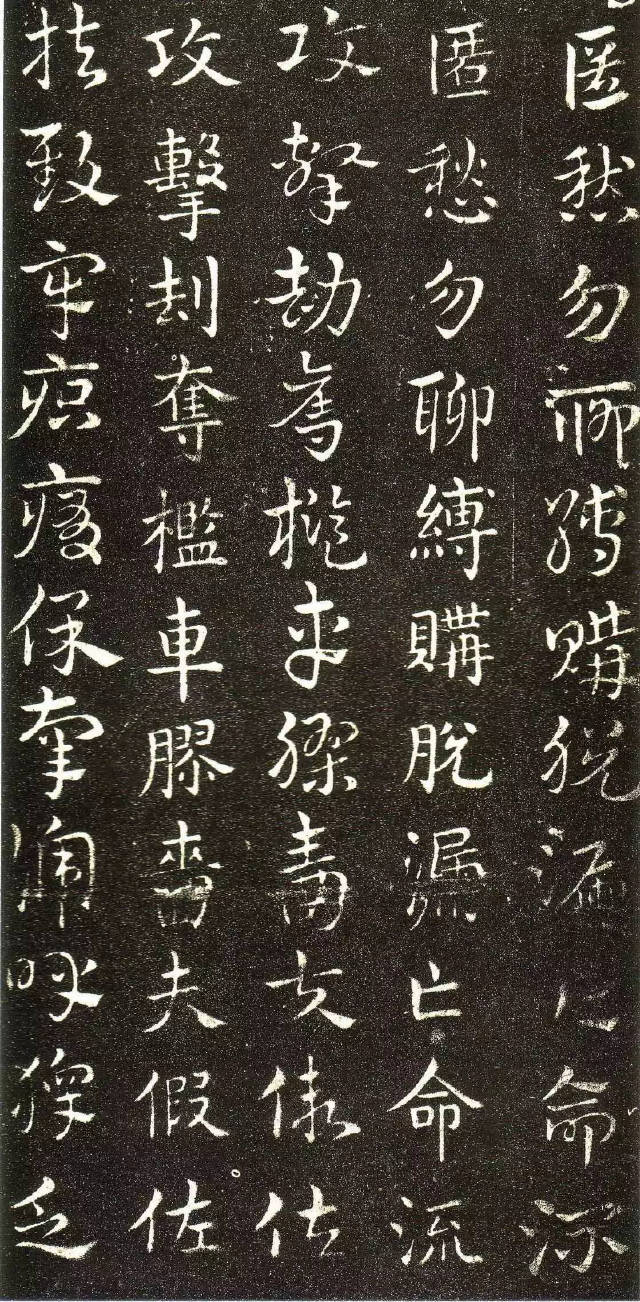 匿愁勿聊縛購脫漏亡命流
匿愁勿聊縛購脫漏亡命流
攻擊劫奪檻車膠嗇夫假佐
攻擊刦奪檻車膠嗇夫假佐
扶致牢疻保辜啼呼乏